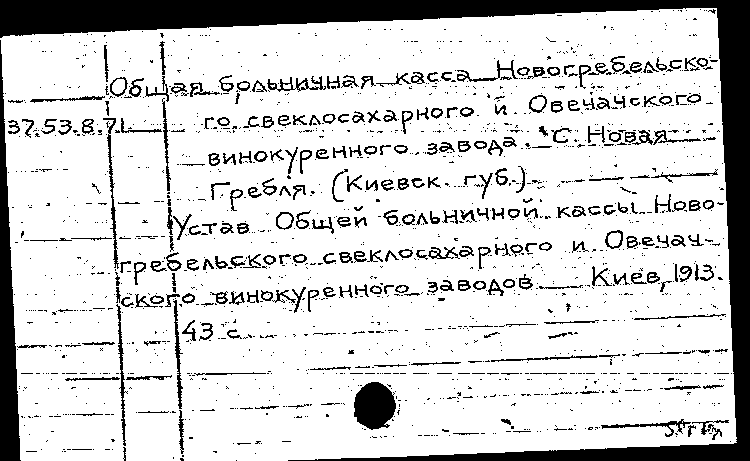 Общая больничная касса Новогребельско-
37.53.8.71. го свеклосахарного и Овечачского
винокуренного завода. С. Новая
Гребля. (Киевск. губ.)
Устав Общей больничной кассы Ново-
гребельского свеклосахарного и Овечач-
ского винокуренного заводов. Киев, 1913.
43 с.